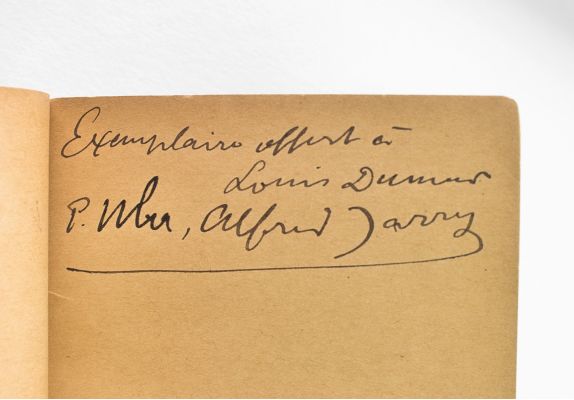 Exemplaire offert à
Louis Dumur
P. Ubu, Alfred Jarry